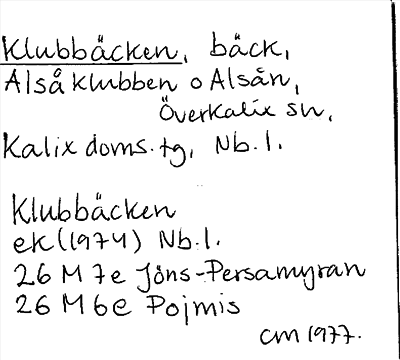 Klubbäcken, bäck,
Alsåklubben o Alsån,
Överkalix sn,
Kalix doms.tg, Nb.l.
Klubbäcken
ek (1974) Nb.l.
26 M 7e Jöns-Persamyran
26 M 6e Pojmis
CM 1977.